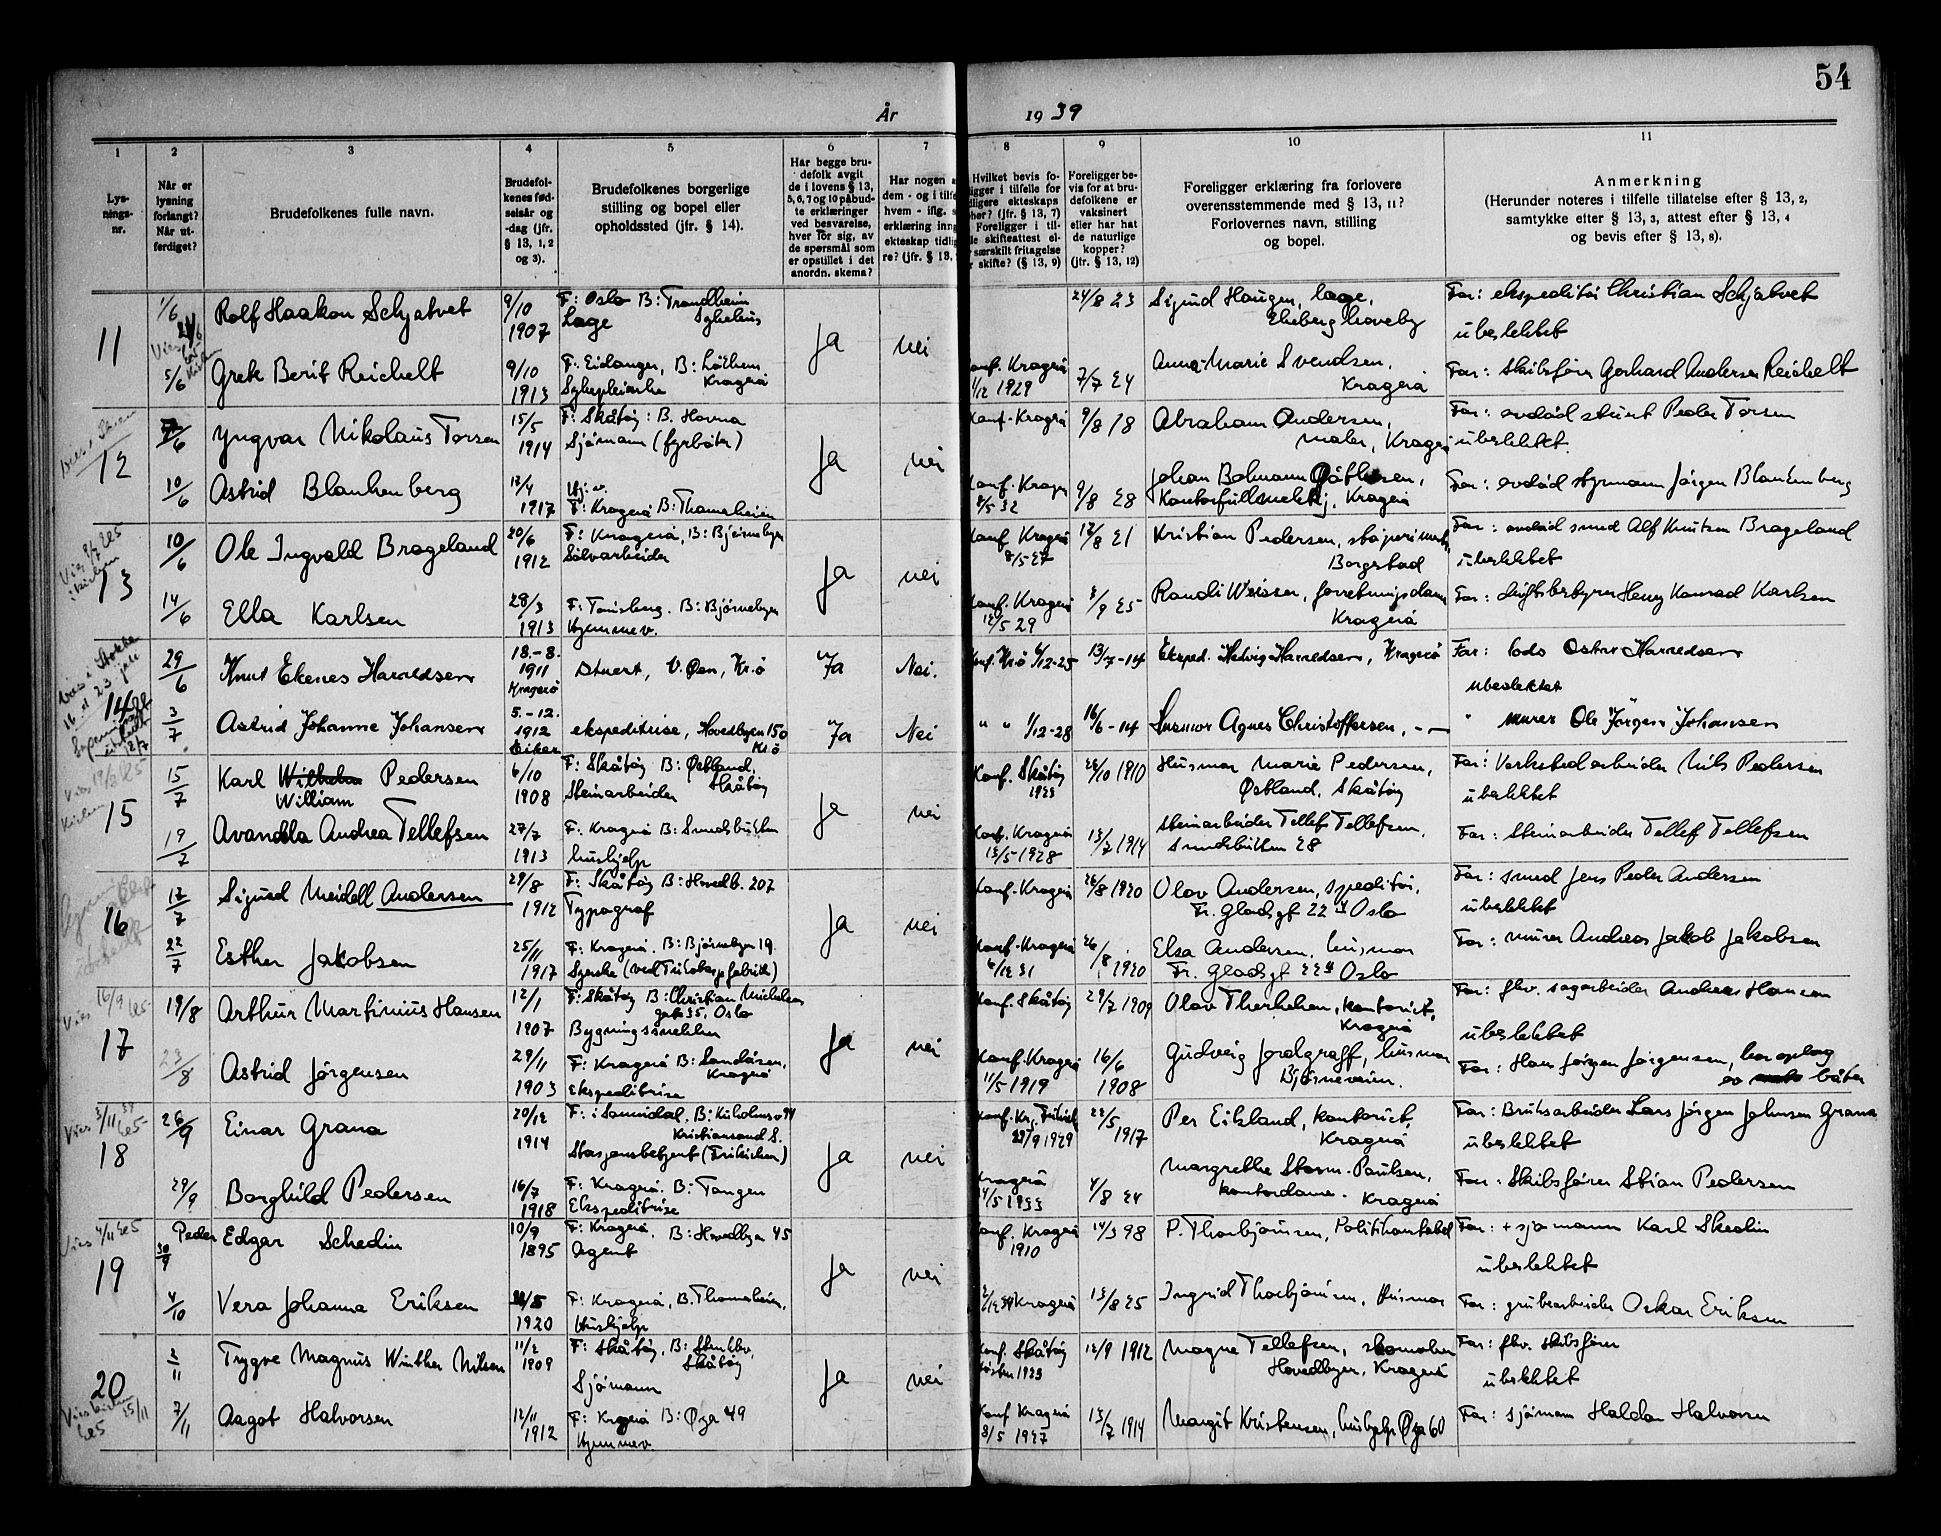 54
År 1939
1
2
3
4
5
6
7
8
9
10
11
Lys-
nings-
nr.
Når er
lysning
forlangt?
Når ut-
ferdiget?
Brudefolkenes fulle navn.
Brudefol-
kenes fød-
selsår og
-dag (jfr.
§ 13, 1, 2
og 3).
Brudefolkenes borgerlige
stilling og bopel eller
opholdssted (jfr. § 14).
Har begge bru-
defolk avgit
de i lovens § 13,
5, 6, 7 og 10 påbud-
te erklæringer
ved besvarelse,
hver for sig, av
de spørsmål som
er opstillet i det
anordn. skema?
Har nogen a
dem - og i tilfe
hvem - iflg. s
erklæring inng
ekteskap tidlig
re? (jfr. § 13,
Hvilket bevis fo-
ligger i tilfelle for
dligere ekteskaps
hør? (jfr. § 13, 7)
Foreligger i til-
le skifteattest el-
særskilt fritagelse
skifte? (§ 13, 9)
Foreligger be-
vis for at bru-
defolkene er
vaksinert
eller har hat
de naturlige
kopper?
(jfr. § 13, 12)
Foreligger erklæring fra forlovere
overensstemmende med § 13, 11?
Forlovernes navn, stilling
og bopel.
Anmerkning
(Herunder noteres i tilfelle tillatelse efter § 13, 2,
samtykke efter § 13, 3, attest efter § 13, 4
og bevis efter § 13, 8).
11
1/6 Rolf Haakon Schjatvet 9/10 1907 F: Oslo B: Trondheim
Læge
Ja nei
24/8 23 Sigurd Haugen, læge,
Far: ekspeditør Christian Schjatvet
ubeslektet
5/6 Grete Berit Reichelt 9/10 1913 F: Eidanger, B:
Sykepleierske Kragerø
Konf. Kragerø 1929 7/7 24 Anna-Marie Svendsen,
Kragerø
Far: skibsfører Gerhard Andersen Reichelt
12
7/6 Yngvar Nikolaus Torsen 15/5 1914 F: Skåtøy: B. Havna
Sjømann (fyrbøter)
Ja nei
Konf. Kragerø 9/8 18 Abraham Andersen,
maler, Kragerø
Far: avdød stuert Peder Torsen
ubeslektet.
10/6 Astrid Blankenberg 13/4 1917 Hj.v.
F: Kragerø B: Thomesheien
Konf. Krager 8/5 32 9/8 28 Johan Bolmann
Kragerø
Far: avdød styrmann Jørgen Blankenberg
13
10/6 Ole Ingvald Brageland 20/6 1912 F: Kragerø, B: Bjørnebyen
Ja nei
Konf. Kragerø 8/5 27 12/8 21 Kristian Pedersen,
Borgestad
Far: avdød smed Alf Knutsen Brageland
ubeslektet
14/6 Ella Karlsen 28/3 1913 F: Tønsberg. B: Bjørnebyen
Hjemmev.
Konf. Kragerø 12/5 29 3/9 25 Randi Weisser, forretningsdame
Kragerø
Far: driftsbestyrer Henry Konrad Karlsen
14
29/6 Knut Ekenes Harredsen 18.-8. 1911 Kragerø Stuert, V. Øen, Kr.ø
Ja Nei.
Konf. Kr.ø 6/12-25 13/7-14 Eksped. Hedvig Harredsen, Kragerø
Far: lods Oskar Harredsen
ubeslektet
3/7 Astrid Johanne Johansen 5.-12. 1912 Eiker ekspeditrise, Hovedbyen 150
Kr.ø
Ja Nei
" " 1/12-28 16/6-14 Husmor Agnes Christoffersen, - " -
" murer Ole Jørgen Johansen
15
15/7 Karl Wilhelm Pedersen
William
6/10 1908 F: Skåtøy B: Østland,
Steinarbeider Skåtøy
Ja nei
Konf. Skåtøy 1923 28/10 1910 Husmor Marie Pedersen,
Østland, Skåtøy
Far: Verkstedarbeider Nils Pedersen
ubeslektet
19/7 Avandla Andrea Tellefsen 27/7 1913 F: Kragerø B: Smedsbukten
hushjelp
Konf. Kragerø 13/5 1928 13/7 1914 Steinarbeider Tellef Tellefsen,
Smedsbukten 28
Far: Steinarbeider Tellef Tellefsen
16
17/7 Sigurd Meidell Andersen 29/8 1912 F: Skåtøy B: Hovedb. 207
Typograf
Ja nei
Konf. Kragerø 26/8 1920 Olav Andersen, speditør,
Fr. Gladsgt 22 Oslo
Far: smed Jens Peder Andersen
ubeslektet
22/7 Esther Jakobsen 25/11 1917 F: Kragerø. B: Bjørnebyen 19.
Syerske (ved Trikotasjefabrikk)
Konf. Kragerø 6/12 31 26/8 1920 Elsa Andersen. husmor
Fr. Gladsgt 22 Oslo
Far: murer Andreas Jakob Jakobsen
17
19/8 Arthur Martinius Hansen 12/1 1907 F: Skåtøy B: Christian Michelsen
gate 35, Oslo
Bygningssnekker
Ja nei
Konf. Skåtøy 29/7 1909 Olav Therkelsen, kontorist,
Kragerø
Far: fhv. sagarbeider Andreas Hansen
ubeslektet
23/8 Astrid Jørgensen 29/11 1903 F: Kragerø B: Sandåsen,
Kragerø
Ekspeditrise
Konf. Kragerø 11/5 1919 16/6 1908 Gudveig Jordgraff, husmor
Bjørneveien.
Far: Hans Jørgen Jørgensen, har oplag
av båter
18
26/9 Einar Grana 20/12 1914 F: i Sannidal, B: Kirkeholmen 94
Kristiansand S.
Stasjonsbetjent (Frikirken)
Ja nei
Konf. Kr. Frikirke 29/9 1929 22/5 1917 Per Eikland, kontorist,
Kragerø
Far: Bruksarbeider Lars Jørgen Johnsen Grana
ubeslektet
29/9 Borghild Pedersen 16/7 1918 F: Kragerø. B: Tangen
Ekspeditrise
Kragerø 4/5 1933 4/8 24 Margrethe Storm-Paulsen,
kontordame. Kragerø
Far: Skibsfører Stian Pedersen
19
30/9 Peder Edgar Schedin 10/9 1895 F: Kragerø. B: Hovedbyen 45
Agent
Ja nei
Konf. Kragerø 1910 14/3 98 P. Thorbjørnsen, Politikonstabel
Far: + sjømann Karl Skedin
ubeslektet
4/10 Vera Johanna Eriksen 1920 F: Kragerø, B. Thomesheien,
Hushjelp
Kragerø 13/8 25 Ingrid Thorbjørnsen, Husmor
Far: grubearbeider Oskar Eriksen
20
2/11 Trygve Magnus Winther Nilsen 11/2 1909 F: Skåtøy, B:
Skåtøy
Sjømann
Ja nei
Konf. Skåtøy høsten 1923 12/9 1912 Magne Tellefsen, skomaker
Hovedbyen, Kragerø
Far: fhv. skibsfører
ubeslektet
7/11 Aagot Halvorsen 12/11 1912 F: Kragerø B: Øya 49
Hjemmev
Konf Kragerø 8/5 1927 13/7 1914 Margit Kristensen, hushjelp Øya 60
Far: sjømann Haldor Halvorsen